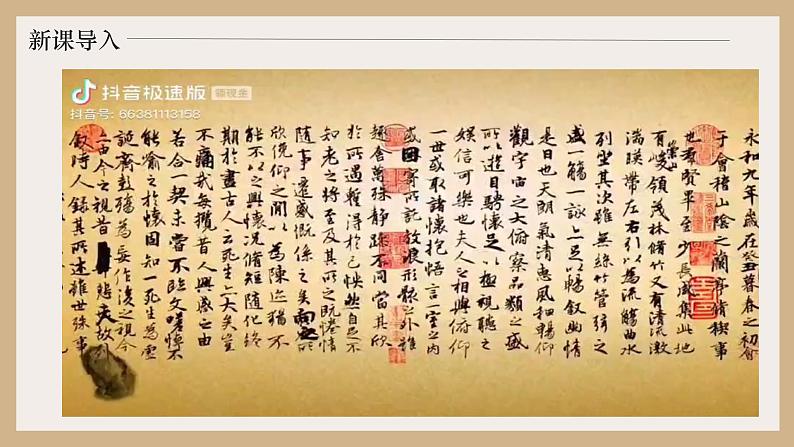 新课导入
抖音极速版 领现金
抖音号: 66381113158
永和九年歲在癸丑暮春之初會
于會稽山陰之蘭亭脩稧事
也羣賢畢至少長咸集此地
有崇山峻領茂林脩竹又有清流激
湍暎帶左右引以為流觴曲水
列坐其次雖無絲竹管弦之
盛一觴一詠亦足以暢叙幽情
是日也天朗氣清惠風和暢仰
觀宇宙之大俯察品類之盛
所以遊目騁懷足以極視聽之
娛信可樂也夫人之相與俯仰
一世或取諸懷抱悟言一室之內
或因寄所託放浪形骸之外雖
趣舍萬殊靜躁不同當其欣
於所遇暫得於己怏然自足不
知老之將至及其所之既惓情
隨事遷感慨係之矣向之所
欣俛仰之間以為陳迹猶不
能不以之興懷況脩短隨化終
期於盡古人云死生亦大矣豈
不痛哉每攬昔人興感之由
若合一契未嘗不臨文嗟悼不
能喻之於懷固知一死生為虛
誕齊彭殤為妄作後之視今
亦由今之視昔悲夫故列
叙時人錄其所述雖世殊事